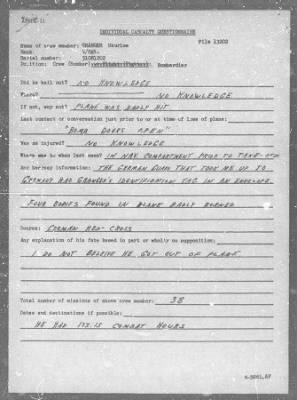 INDIVIDUAL CASUALTY QUESTIONNAIRE
File 13202
Name of crew member: GRANGER Maurice
Rank: S/Sgt.
Serial number: 31081202
Position: Crew (Bomber) Bombardier
Did he bail out? NO KNOWLEDGE
Where? NO KNOWLEDGE
If not, why not? PLANE WAS BADLY HIT
Last contact or conversation just prior to or at time of loss of plane:
"BOMB DOORS OPEN"
Was he injured? NO KNOWLEDGE
Where was he when last seen? IN NAV. COMPARTMENT PRIOR TO TAKE-OFF
Any hearsay information: THE GERMAN GUARD THAT TOOK ME UP TO
GERMANY HAD GRANGER'S IDENTIFICATION TAG IN AN ENVELOPE.
FOUR BODIES FOUND IN PLANE BADLY BURNED
Source: GERMAN RED-CROSS
Any explanation of his fate based in part or wholly on supposition:
I DO NOT BELIEVE HE GOT OUT OF PLANE
Total number of missions of above crew member: 38
Dates and destinations if possible:
HE HAD 173.15 COMBAT HOURS
6-3861,AF